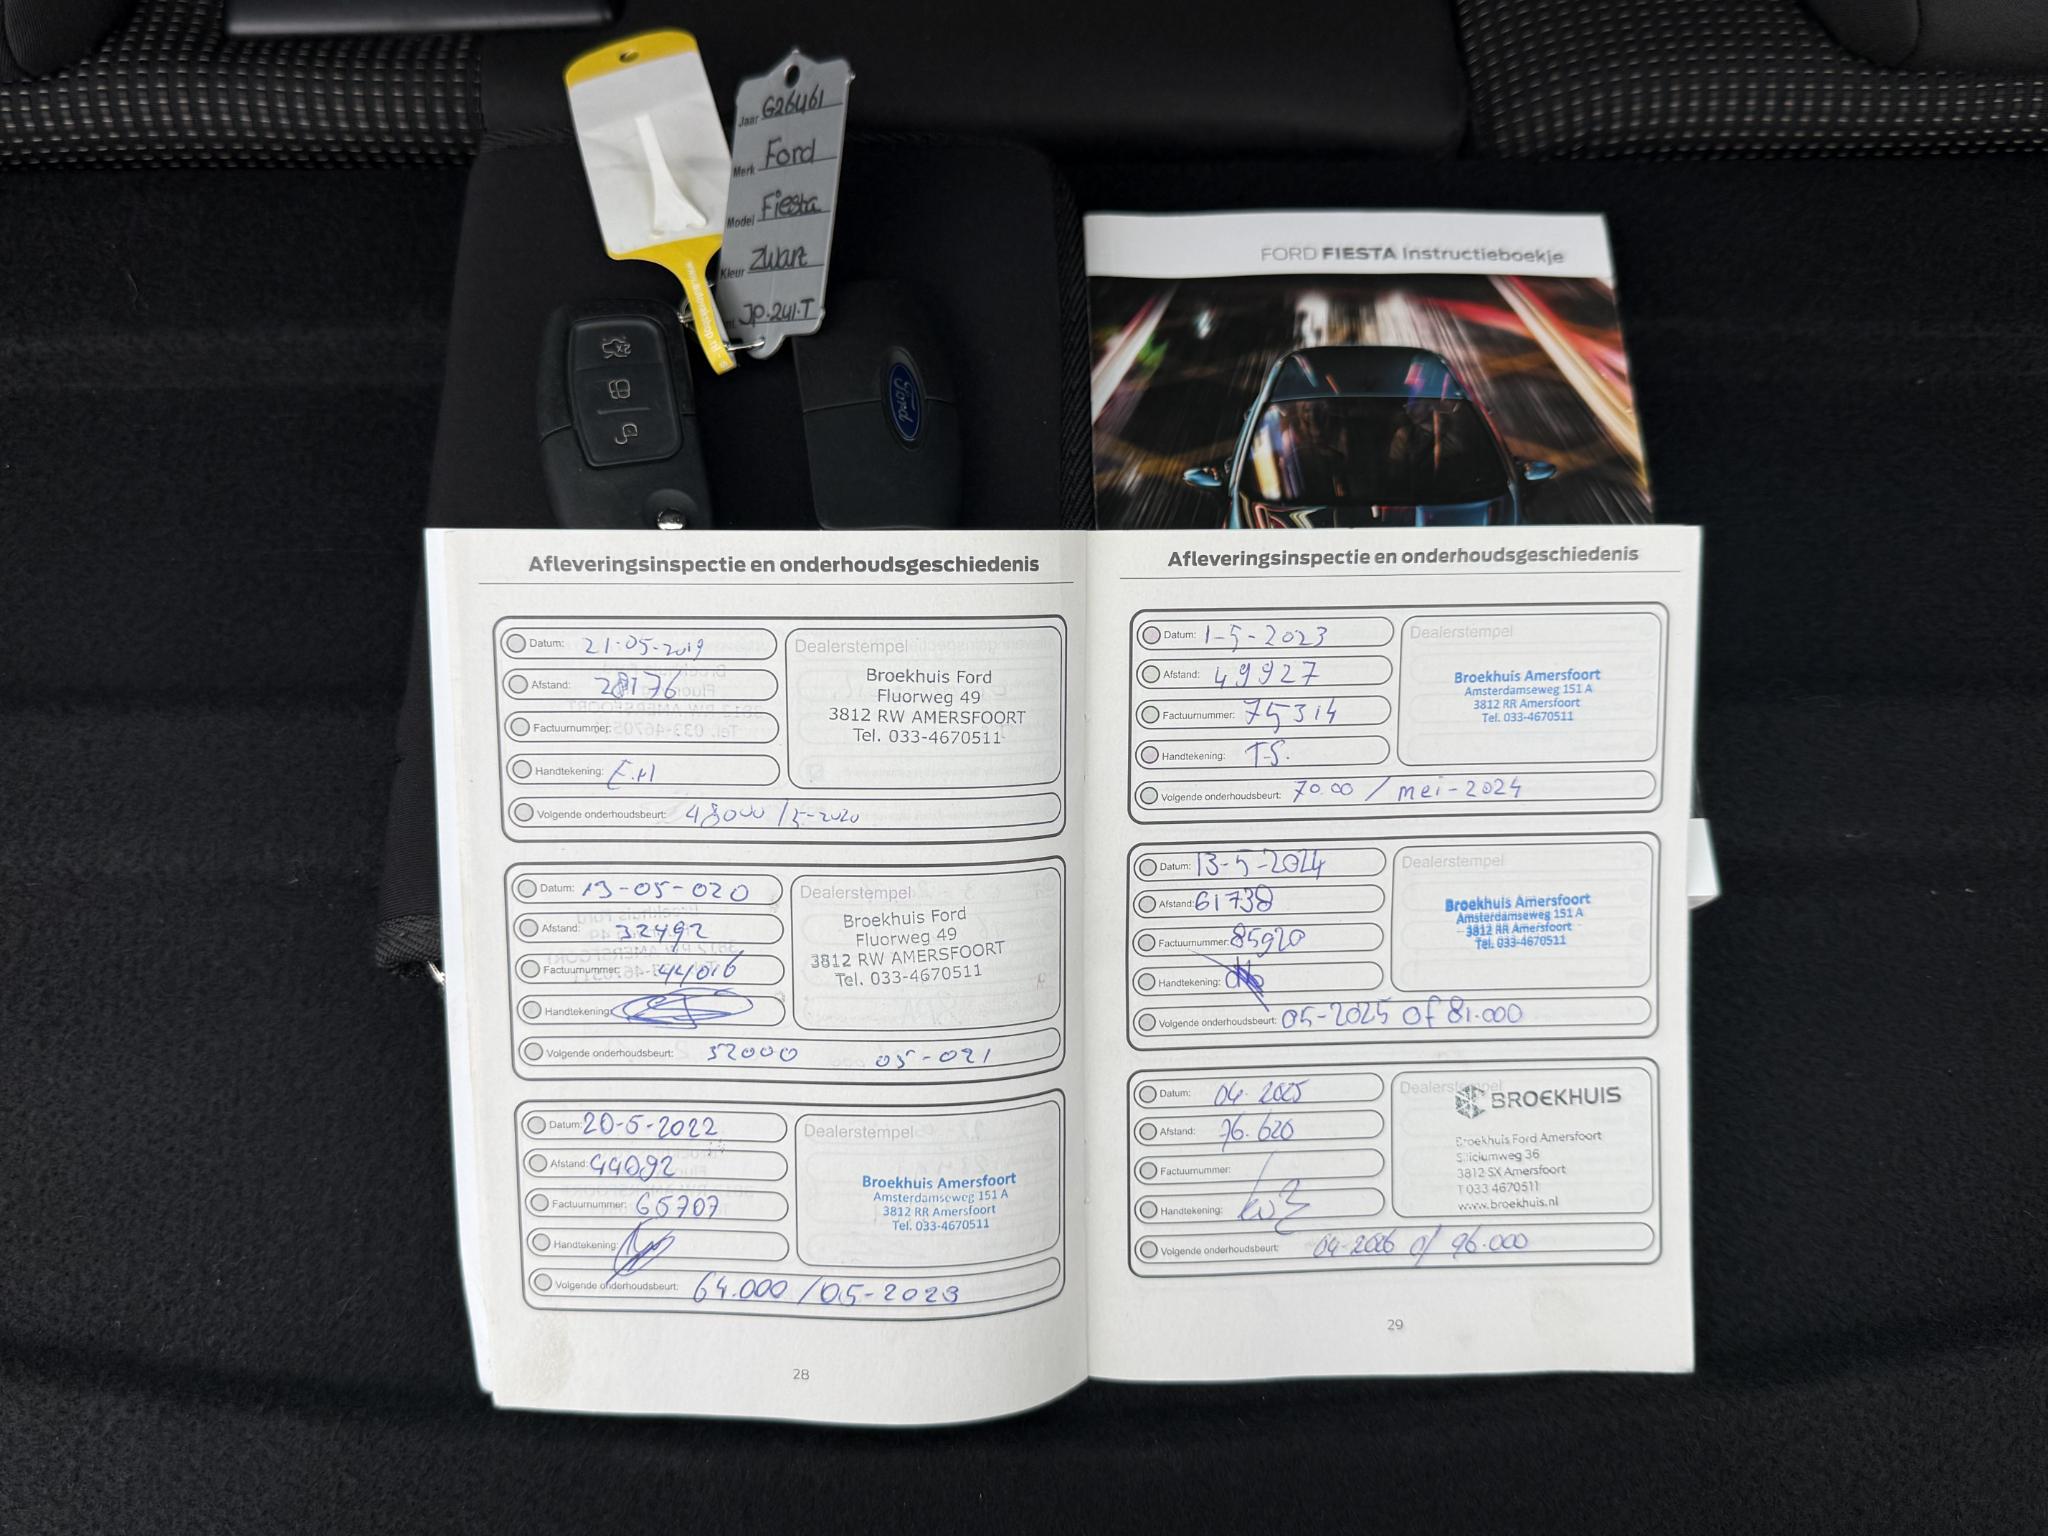 Jaar G26461
Merk Ford
Model Fiesta
Kleur Zwart
JP-241-T
2x
Ford
FORD FIESTA Instructieboekje
Afleveringsinspectie en onderhoudsgeschiedenis
Datum: 21-05-2019
Afstand: 28176
Factuurnummer:
Handtekening: E.H
Volgende onderhoudsbeurt: 48000 / 5-2020
Dealerstempel
Broekhuis Ford
Fluorweg 49
3812 RW AMERSFOORT
Tel. 033-4670511
Datum: 13-05-020
Afstand: 32492
Factuurnummer: 44016
Handtekening:
Volgende onderhoudsbeurt: 52000 05-021
Dealerstempel
Broekhuis Ford
Fluorweg 49
3812 RW AMERSFOORT
Tel. 033-4670511
Datum: 20-5-2022
Afstand: 44092
Factuurnummer: 65707
Handtekening:
Volgende onderhoudsbeurt: 64.000 / 05-2023
Dealerstempel
Broekhuis Amersfoort
Amsterdamseweg 151 A
3812 RR Amersfoort
Tel. 033-4670511
28
Afleveringsinspectie en onderhoudsgeschiedenis
Datum: 1-5-2023
Afstand: 49927
Factuurnummer: 75314
Handtekening: T.S.
Volgende onderhoudsbeurt: 70.00 / mei-2024
Dealerstempel
Broekhuis Amersfoort
Amsterdamseweg 151 A
3812 RR Amersfoort
Tel. 033-4670511
Datum: 13-5-2024
Afstand: 61738
Factuurnummer: 85920
Handtekening:
Volgende onderhoudsbeurt: 05-2025 of 81.000
Dealerstempel
Broekhuis Amersfoort
Amsterdamseweg 151 A
3812 RR Amersfoort
Tel. 033-4670511
Datum: 04-2025
Afstand: 76.620
Factuurnummer: /
Handtekening:
Volgende onderhoudsbeurt: 04-2026 of 96.000
Dealerstempel
BROEKHUIS
Broekhuis Ford Amersfoort
Siliciumweg 36
3812 SX Amersfoort
T 033 4670511
www.broekhuis.nl
29